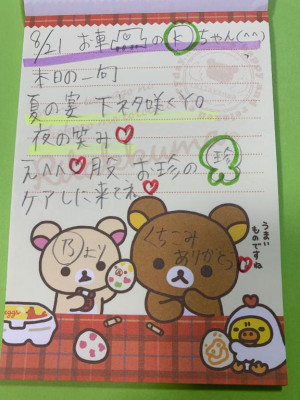 8/21 お車の K ちゃん(^^)
本日の一句
夏の宴 下ネタ咲くYO
夜の笑み♡
え^^♡股 お珍の 珍
ケアしに来てネ♡
乃より
くちこみ
ありがとう
うまい
ものですね